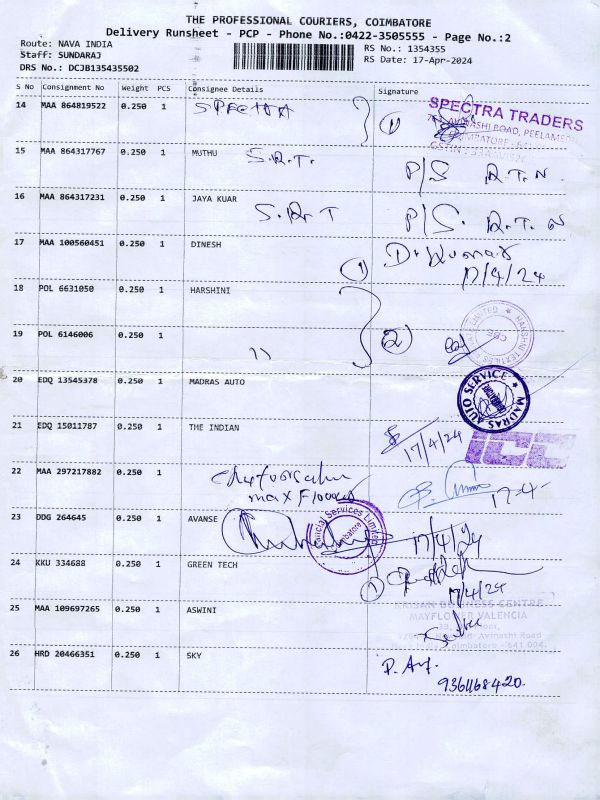 THE PROFESSIONAL COURIERS, COIMBATORE
Delivery Runsheet - PCP - Phone No.:0422-3505555 - Page No.:2
Route: NAVA INDIA
RS No.: 1354355
Staff: SUNDARAJ
RS Date: 17-Apr-2024
DRS No.: DCJB135435502
S No Consignment No Weight PCS Consignee Details Signature
14 MAA 864819522 0.250 1 1
SPECTRA TRADERS
AVINASHI ROAD, PEELAMEDU
COIMBATORE
GSTIN
15 MAA 864317767 0.250 1 MUTHU S.R.T. P/S R.T.N.
16 MAA 864317231 0.250 1 JAYA KUAR S.R.T P/S. R.T.N
17 MAA 100560451 0.250 1 DINESH 1 D. Kumar
17/4/24
18 POL 6631050 0.250 1 HARSHINI
HARSHNI TEXTILES LIMITED
CBE
19 POL 6146006 0.250 1 11 2
20 EDQ 13545378 0.250 1 MADRAS AUTO
MADRAS AUTO SERVICE
21 EDQ 15011787 0.250 1 THE INDIAN 17/4/24
22 MAA 297217882 0.250 1
max 17-4-
23 DDG 264645 0.250 1 AVANSE 17/4/24
Financial Services Limited
Coimbatore
24 KKU 334688 0.250 1 GREEN TECH 1
17/4/24
25 MAA 109697265 0.250 1 ASWINI
BUSINESS CENTRE
MAYFLOWER VALENCIA
Avinashi Road
Coimbatore - 641 004.
26 HRD 20466351 0.250 1 SKY